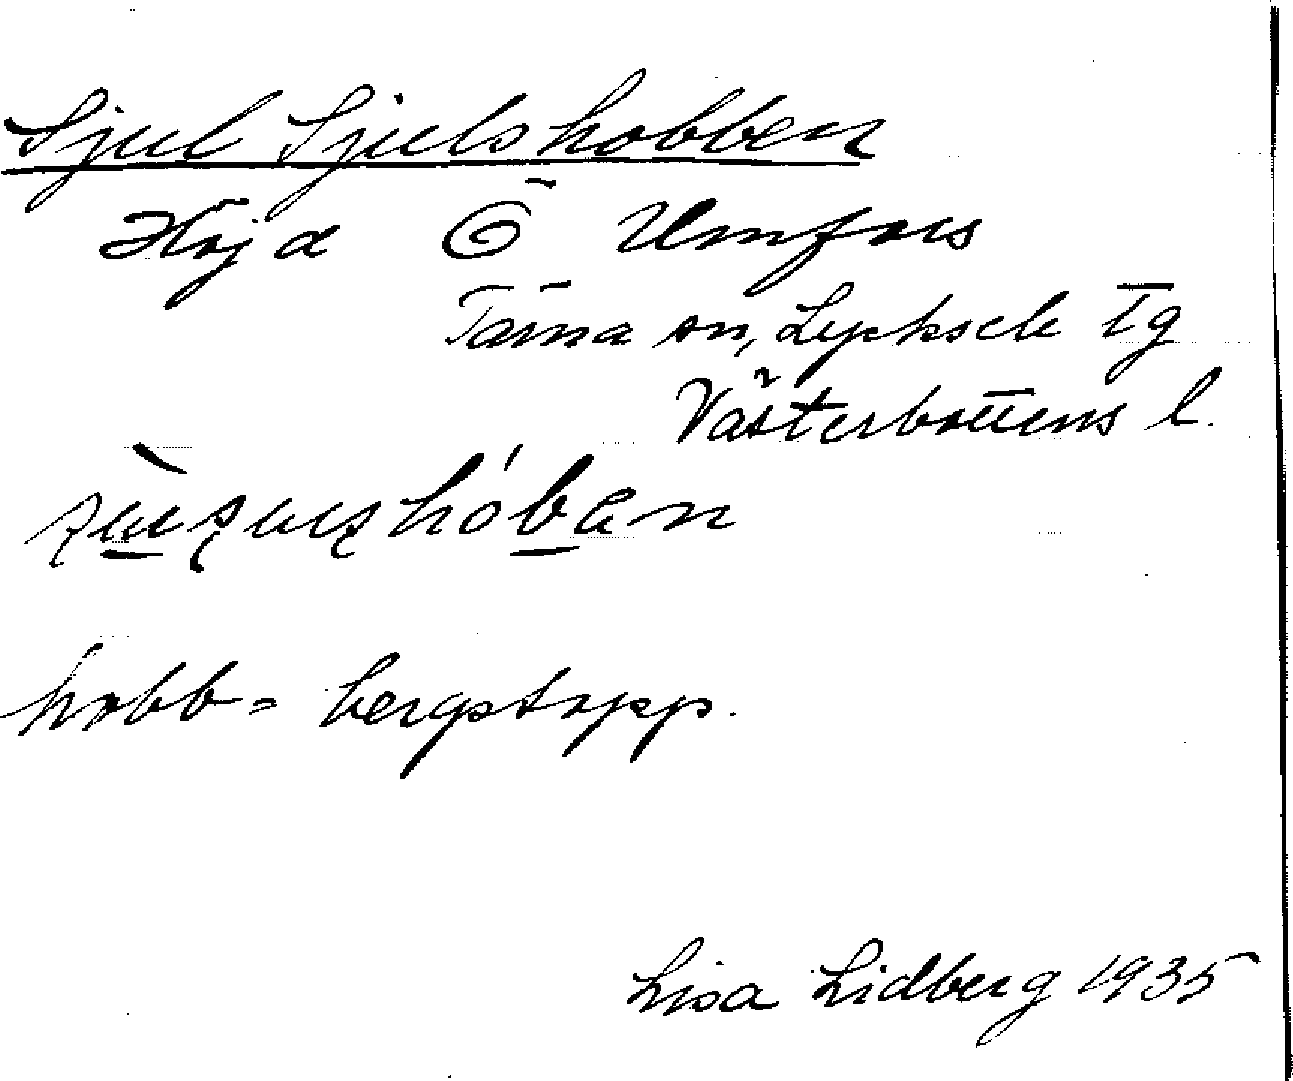 Sjul Sjulshobben
Höjd Ö Umfors
Tärna sn, Lycksele Tg
Västerbottens l.
hobb = bergstopp.
Lisa Lidberg 1935